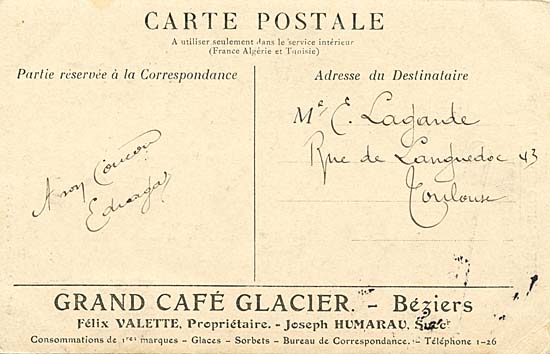 CARTE POSTALE
A utiliser seulement dans le service intérieur
(France Algérie et Tunisie)
Partie réservée à la Correspondance
Adresse du Destinataire
Me E. Lagarde
Rue de Languedoc 43
Toulouse
A mon
GRAND CAFÉ GLACIER. - Béziers
Félix VALETTE, Propriétaire. - Joseph HUMARAU, Succr
Consommations de 1res marques - Glaces - Sorbets - Bureau de Correspondance. - Téléphone 1-26